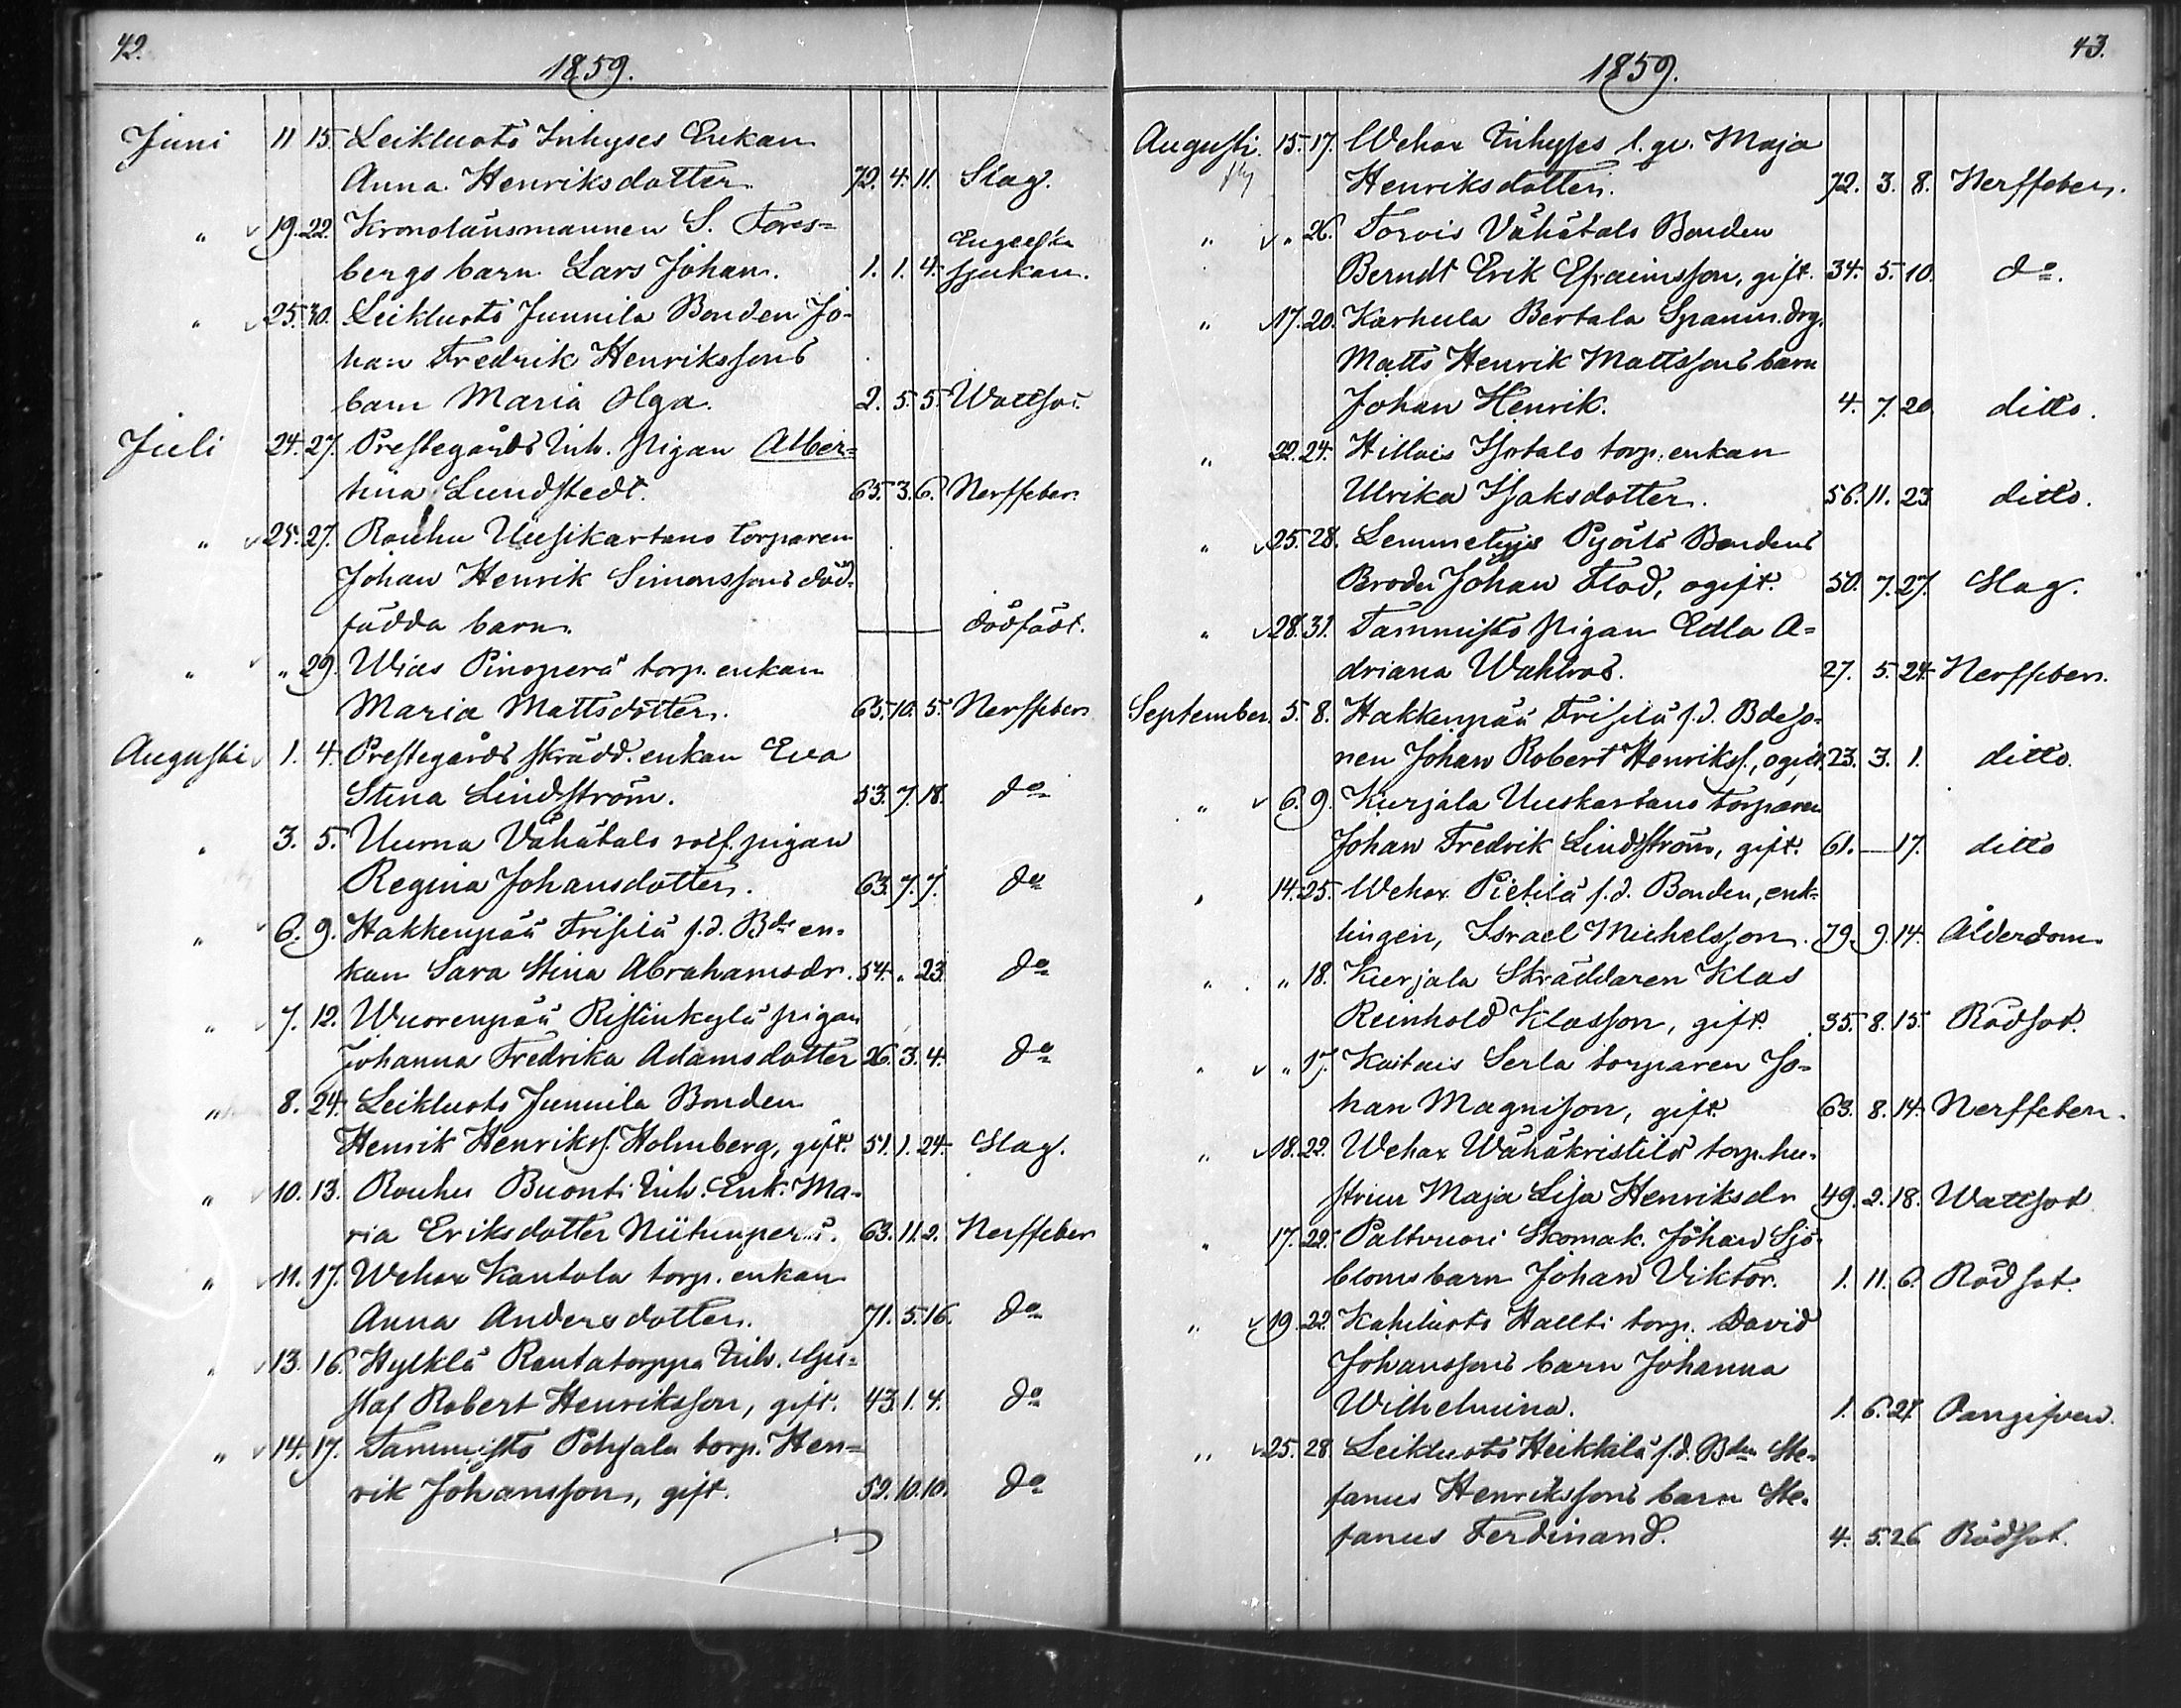 42.
1859.
Juni 11 15. Leikluoto Inhyses Enkan
Anna Henriksdotter. 72. 4. 11. Slag.
" 19. 22. Kronolänsmannen S. Fors=
bergs barn Lars Johan. 1. 1. 4. Engelska sjukan.
" 25. 30. Leikluoto Junnila Bonden Jo-
han Fredrik Henrikssons
barn Maria Olga. 2. 5. 5. Wattsot.
Juli 24. 27. Prestegårds Inh. pigan Alber=
tina Lundstedt. 65. 3. 6. Nerffeber.
" 25. 27. Rouhu Uusikartano torparen
Johan Henrik Simonssons död-
födda barn. — dödfödt.
" " 29. Wias Pinoperä torp. enkan
Maria Mattsdotter. 65. 10. 5. Nerffeber
Augusti 1. 4. Prestegårds skrädd. enkan Eva
Stina Lindström. 53. 7. 18. do
" 3. 5. Uurna Vähätalo rotf. pigan
Regina Johansdotter. 63. 7. 7. do
" 6. 9. Hakkenpää Frisilä f.d. Bde en-
kan Sara Stina Abrahamsdr. 54. " 23. do
" 7. 12. Wuorenpää Ristinkylä pigan
Johanna Fredrika Adamsdotter 26. 3. 4. do
" 8. 24. Leikluoto Junnila Bonden
Henrik Henrikss. Holmberg, gift. 51. 1. 24. Slag.
" 10. 13. Rouhu Buonti Inh. Enk. Ma-
ria Eriksdotter Niitunperä. 63. 11. 2. Nerffeber
" 11. 17. Wehax Kantola torp. enkan
Anna Andersdotter. 71. 5. 16. do
" 13. 16. Hylkilä Rantatorppa Inh. Gu-
staf Robert Henriksson, gift. 43. 1. 4. do
" 14. 17. Tammisto Pohjala torp. Hen=
rik Johansson, gift. 52. 10. 10. do
43.
1859.
Augusti. 15. 17. Wehax Inhyses l. gu. Maja
Henriksdotter. 72. 3. 8. Nerffeber.
" " 26. Torvis Vähätalo Bonden
Berndt Erik Efraimsson, gift. 34. 5. 10. do.
" 17. 20. Karhula Bertala Spanm. drg.
Matts Henrik Mattssons barn
Johan Henrik. 4. 7. 20 ditto.
" 22. 24. Hillois Isotalo torp. enkan
Ulrika Isaksdotter. 56. 11. 23 ditto.
" 25. 28. Lemmetyis Pyöli Bondens
Broder Johan Flod, ogift. 50. 7. 27. Slag.
" 28. 31. Tammisto pigan Edla A=
driana Wahlros. 27. 5. 24. Nerffeber.
September. 5. 8. Hakkenpää Frisilä f.d. Bdeso-
nen Johan Robert Henrikss., ogift. 23. 3. 1. ditto.
" 6. 9. Kurjala Uuskartano torparen
Johan Fredrik Lindström, gift. 61. — 17. ditto
" 14. 25. Wehax Pietilä f.d. Bonden, enk-
lingen, Israel Michelsson. 79. 9. 14. Ålderdom
" " 18. Kurjala Skräddaren Klas
Reinhold Klasson, gift. 35. 8. 15. Rödsot.
" " 17. Kaitais Serla torparen Jo-
han Magnison, gift. 63. 8. 14. Nerffeber.
" 18. 22. Wehax Wähäkristilä torp. hu-
strun Maja Lisa Henriksdr 49. 2. 18. Wattsot
" 17. 22. Paltvuori Skomak. Johan Sjö-
bloms barn Johan Viktor. 1. 11. 6. Rödsot.
" 19. 22. Kahiluoto Hallti torp. David
Johanssons barn Johanna
Wilhelmina. 1. 6. 27. Oangifven.
" 25. 28. Leikluoto Heikkilä f.d. Bden Ste-
fanus Henrikssons barn Ste-
fanus Ferdinand. 4. 5. 26 Rödsot.